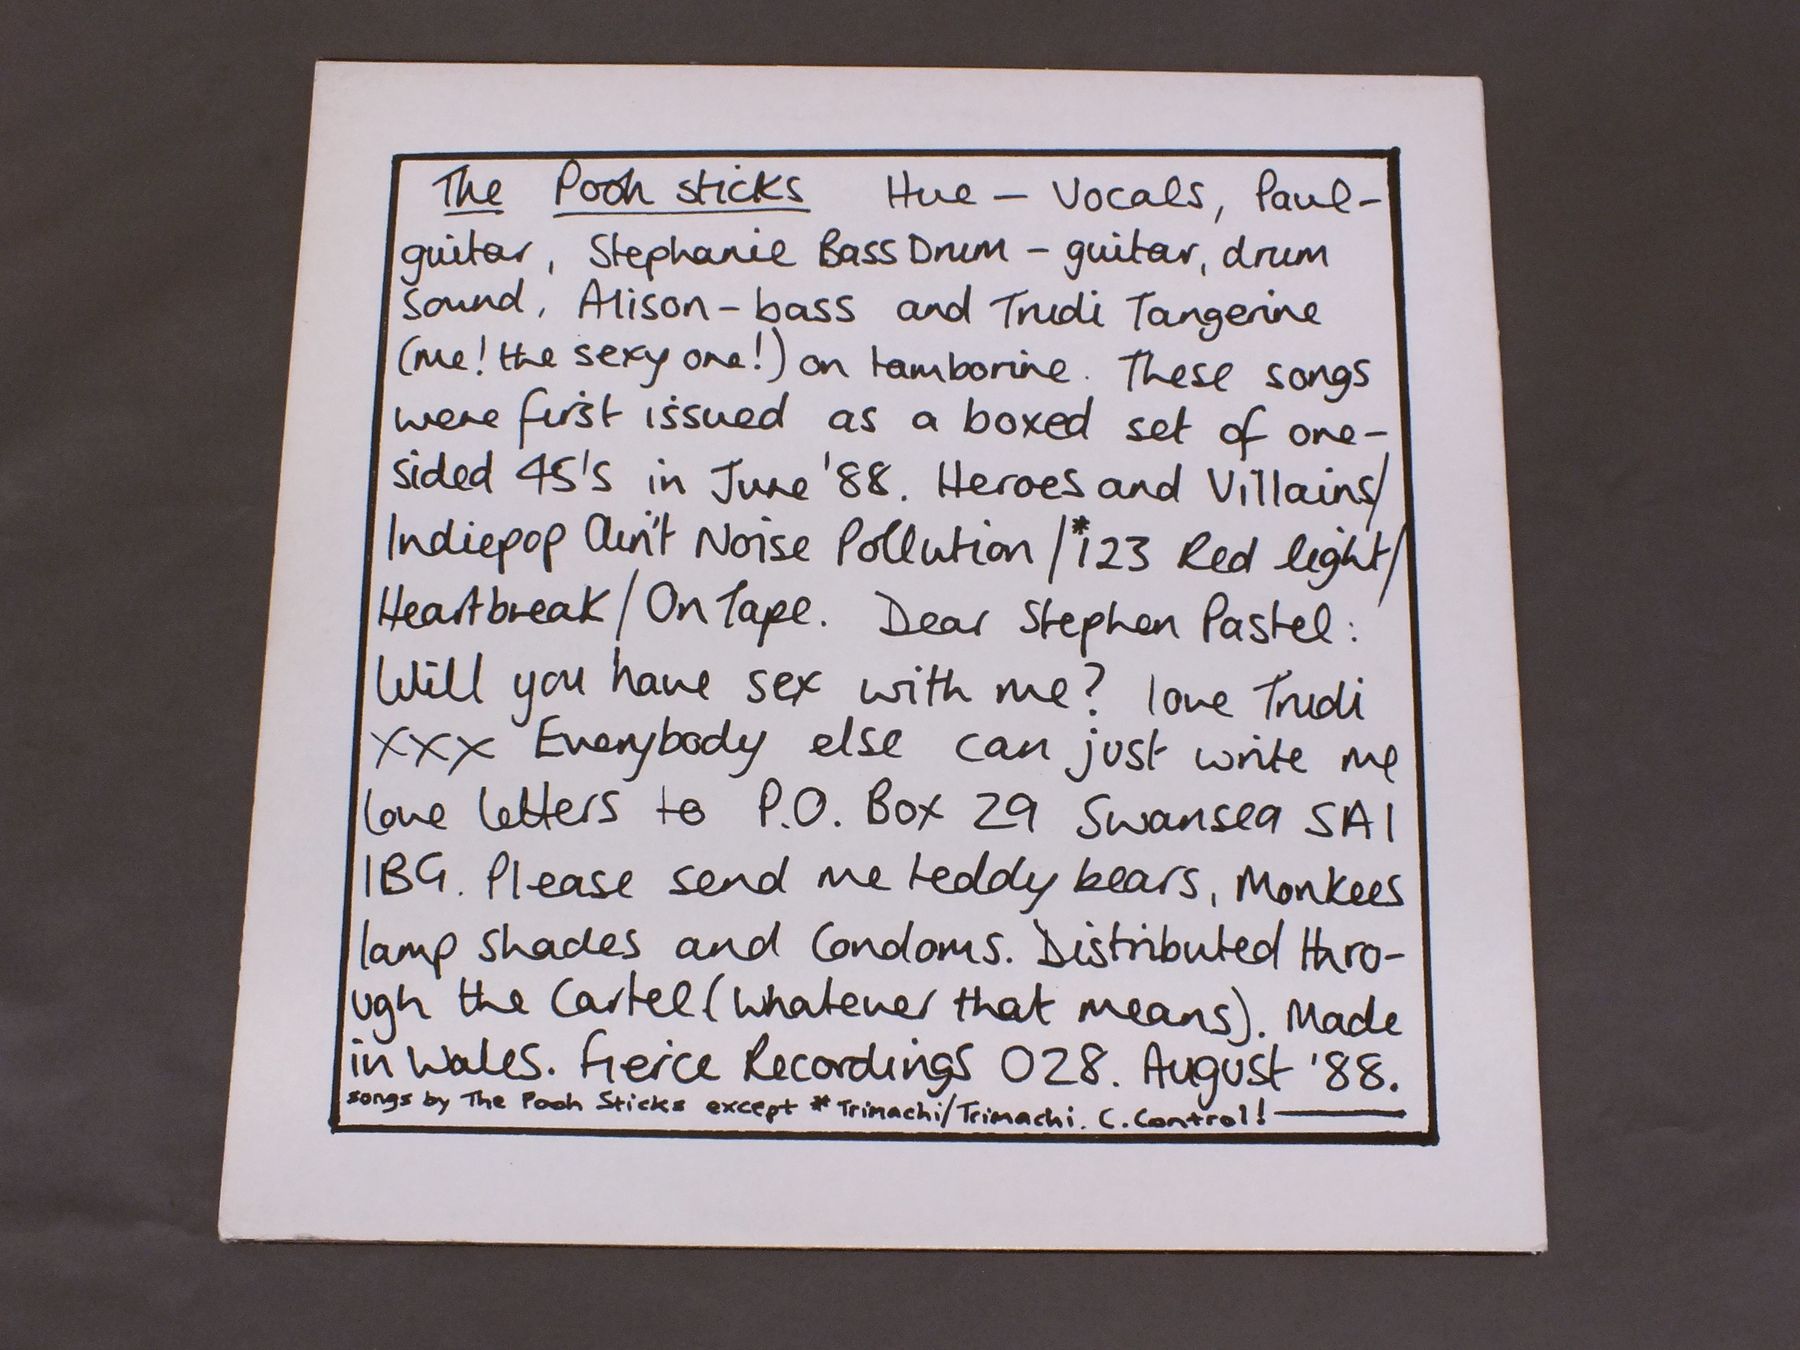 The Pooh sticks Hue - Vocals, Paul-
guitar, Stephanie Bass Drum - guitar, drum
sound, Alison - bass and Trudi Tangerine
(me! the sexy one!) on tamborine. These songs
were first issued as a boxed set of one-
sided 45's in June '88. Heroes and Villains/
Indiepop Ain't Noise Pollution/*123 Red light/
Heartbreak/On Tape. Dear Stephen Pastel:
Will you have sex with me? love Trudi
xxx Everybody else can just write me
love letters to P.O. Box 29 Swansea SA1
1BG. Please send me teddy bears, Monkees
lamp shades and Condoms. Distributed thro-
ugh the Cartel (whatever that means). Made
in Wales. Fierce Recordings 028. August '88.
songs by The Pooh Sticks except *Trimachi/Trimachi. C.Control!